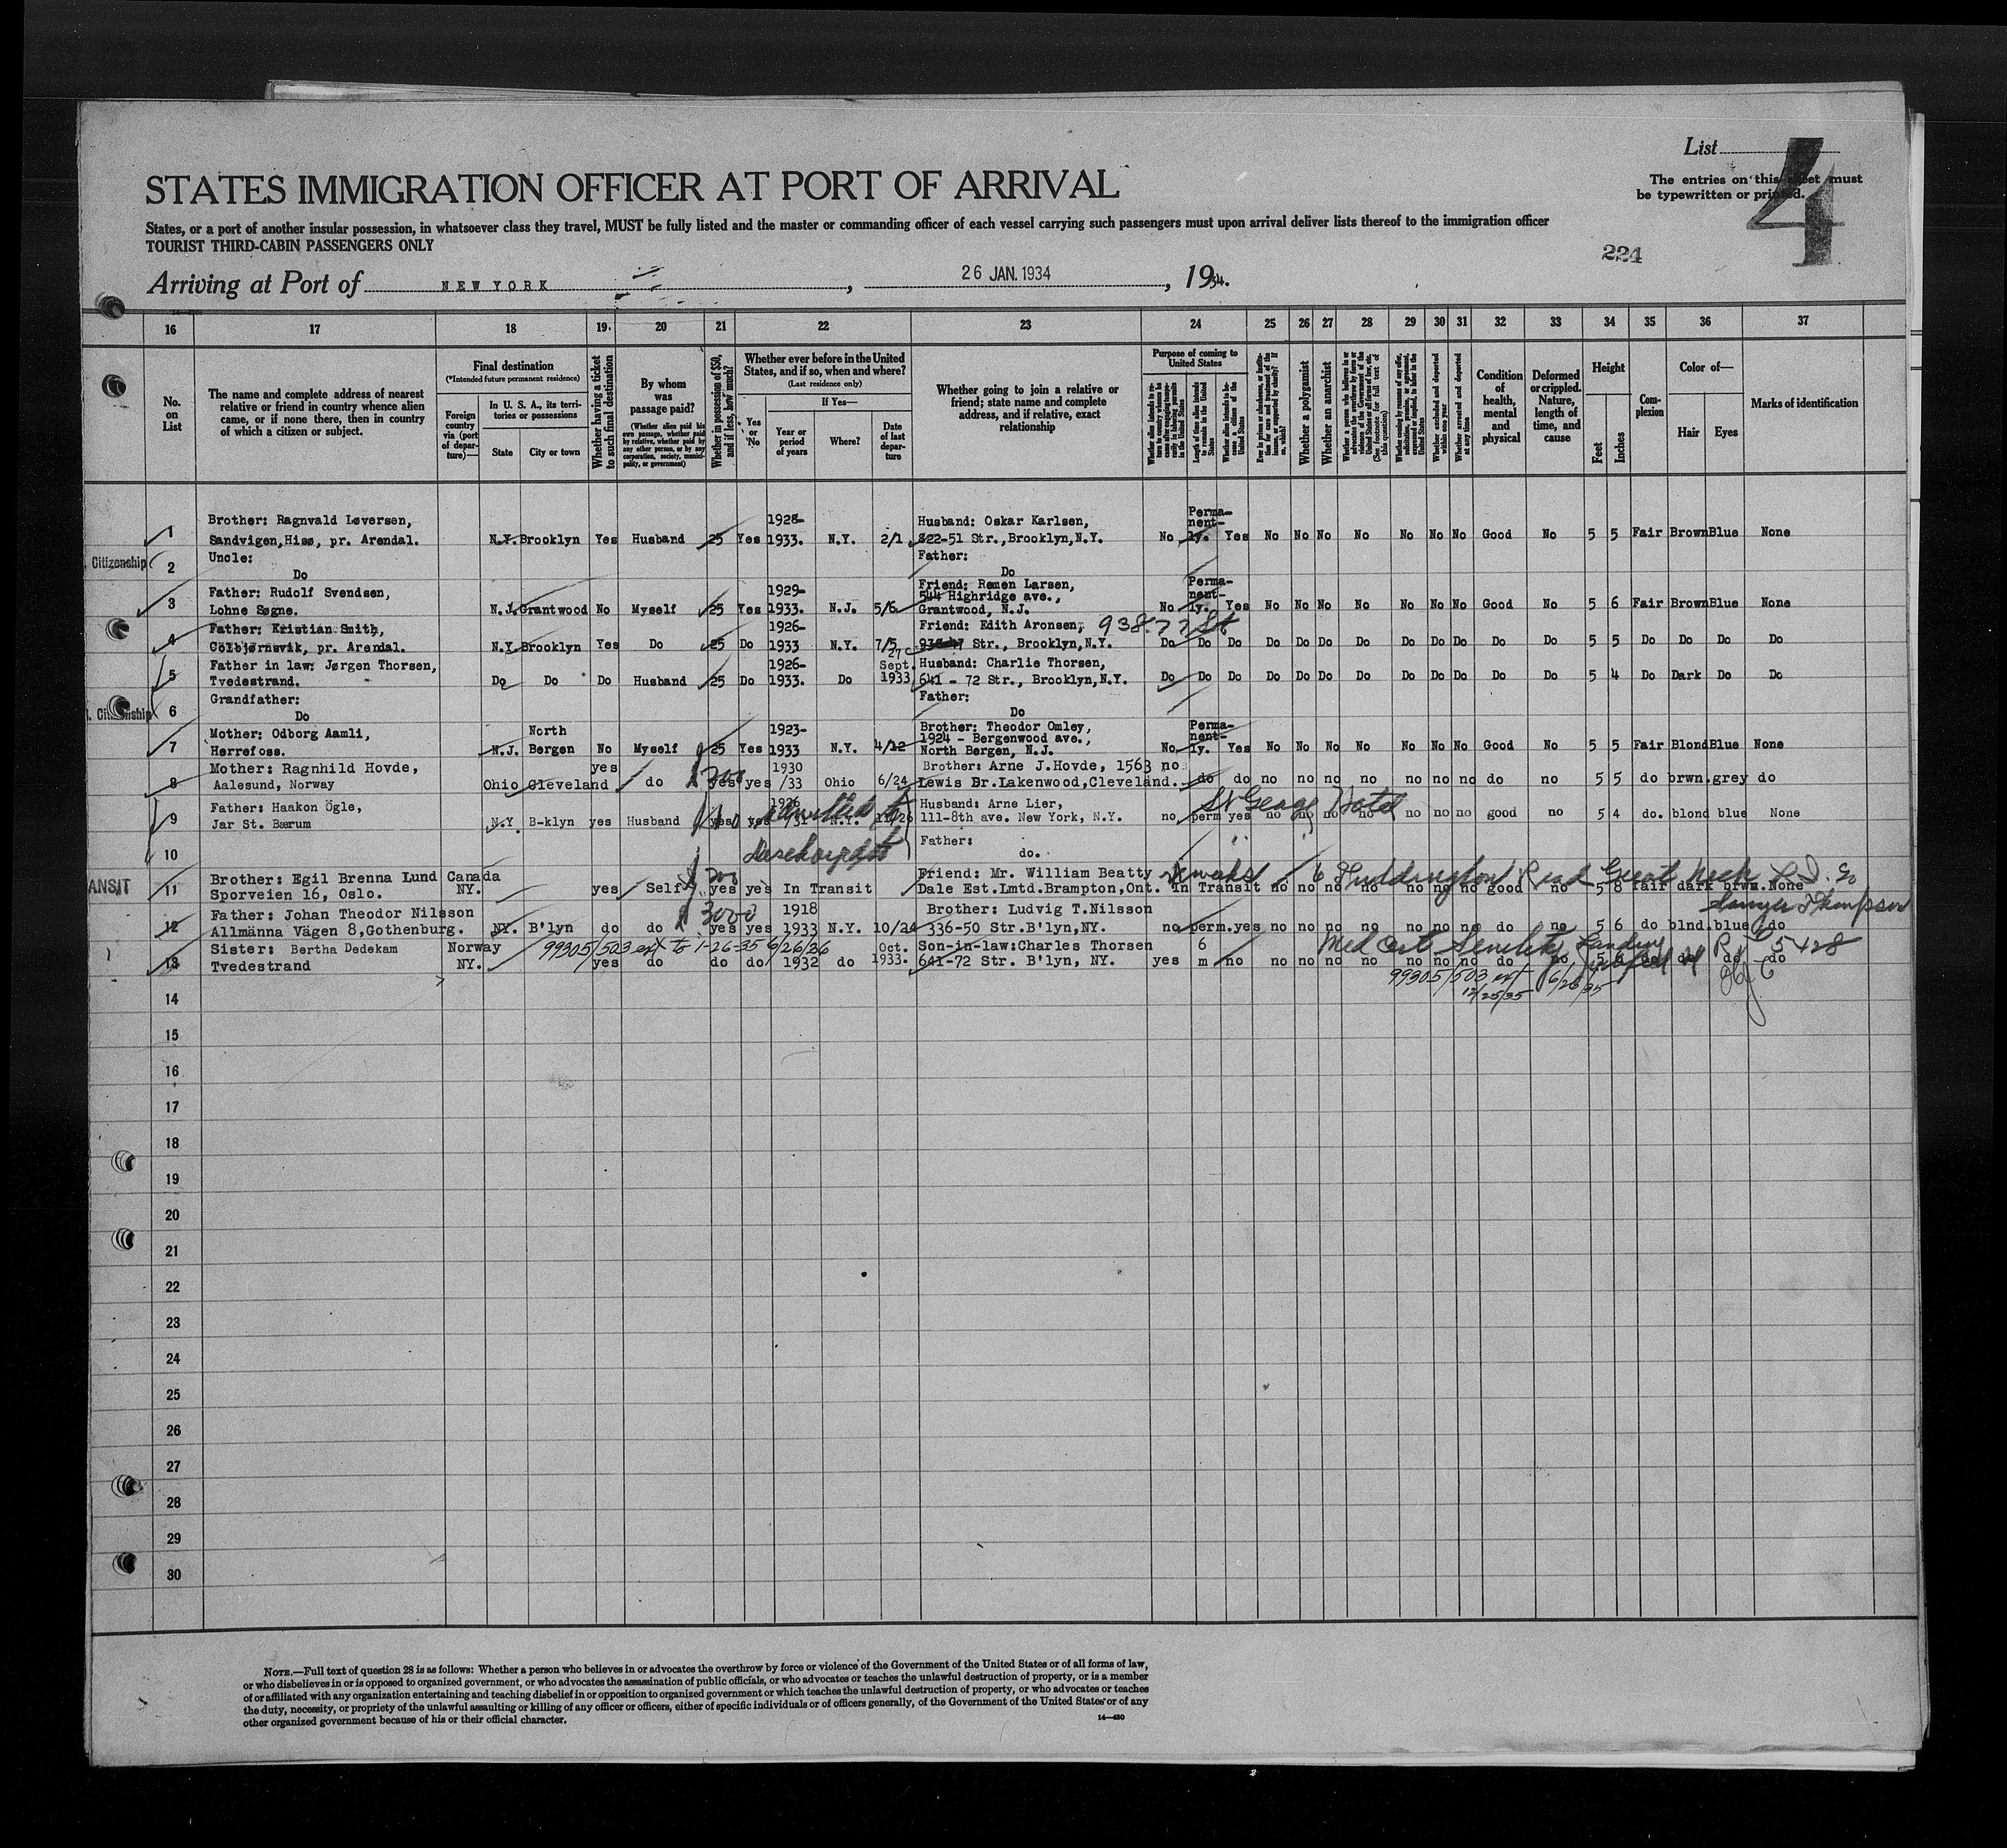 List 4
STATES IMMIGRATION OFFICER AT PORT OF ARRIVAL
The entries on this sheet must
be typewritten or printed.
States, or a port of another insular possession, in whatsoever class they travel, MUST be fully listed and the master or commanding officer of each vessel carrying such passengers must upon arrival deliver lists thereof to the immigration officer
TOURIST THIRD-CABIN PASSENGERS ONLY
224
Arriving at Port of NEW YORK, 26 JAN. 1934, 1934.
16 17 18 19 20 21 22 23 24 25 26 27 28 29 30 31 32 33 34 35 36 37
No. on List
The name and complete address of nearest relative or friend in country whence alien came, or if none there, then in country of which a citizen or subject.
Final destination
(*Intended future permanent residence)
Foreign country via (port of departure)—
In U. S. A., its territories or possessions
State
City or town
Whether having a ticket to such final destination
By whom was passage paid?
(Whether alien paid his own passage, whether paid by relative, whether paid by any other person, or by any corporation, society, municipality, or government)
Whether in possession of $50, and if less, how much?
Whether ever before in the United States, and if so, when and where?
(Last residence only)
Yes or No
If Yes—
Year or period of years
Where?
Date of last departure
Whether going to join a relative or friend; state name and complete address, and if relative, exact relationship
Purpose of coming to United States
Length of time alien intends to remain in the United States
Whether alien intends to become a citizen of the United States
Whether a polygamist
Whether an anarchist
Whether excluded and deported within one year
Whether arrested and deported at any time
Condition of health, mental and physical
Deformed or crippled. Nature, length of time, and cause
Height
Feet
Inches
Complexion
Color of—
Hair
Eyes
Marks of identification
1 Brother: Ragnvald Løversen, 1928- Husband: Oskar Karlsen, Perma-nent-
Sandvigen,Hisø, pr. Arendal. N.Y. Brooklyn Yes Husband 25 Yes 1933. N.Y. 2/1 822-51 Str.,Brooklyn,N.Y. No ly. Yes No No No No No No No Good No 5 5 Fair Brown Blue None
Citizenship
2 Uncle: Father:
Do Do
3 Father: Rudolf Svendsen, 1929- Friend: Remen Larsen, Perma-nent-
544 Highridge ave.,
Lohne Søgne. N.J. Grantwood No Myself 25 Yes 1933. N.J. 5/6 Grantwood, N.J. No ly. Yes No No No No No No No Good No 5 6 Fair Brown Blue None
4 Father: Kristian Smith, 1926- Friend: Edith Aronsen, 938.77 St
Colbjørnsvik, pr. Arendal. N.Y. Brooklyn Yes Do 25 Do 1933 N.Y. 7/5 Str., Brooklyn,N.Y. Do Do Do Do Do Do Do Do Do Do Do Do 5 5 Do Do Do Do
5 Father in law: Jørgen Thorsen, 1926- 27 Sept. Husband: Charlie Thorsen,
Tvedestrand. Do Do Do Husband 25 Do 1933. Do 1933 641 - 72 Str., Brooklyn,N.Y. Do Do Do Do Do Do Do Do Do Do Do Do 5 4 Do Dark Do Do
6 Grandfather: Father:
Do Do
7 Mother: Odborg Aamli, North 1923- Brother: Theodor Omley, Perma-nent-
1924 - Bergenwood ave.,
Herrefoss. N.J. Bergen No Myself 25 Yes 1933 N.Y. 4/12 North Bergen, N.J. No ly. Yes No No No No No No No Good No 5 5 Fair Blond Blue None
8 Mother: Ragnhild Hovde, yes 1930 Brother: Arne J.Hovde, 1563 no
Aalesund, Norway Ohio Cleveland do 200 yes yes /33 Ohio 6/24 Lewis Dr.Lakenwood,Cleveland. do do no no no no no no no do no 5 5 do brwn.grey do
9 Father: Haakon Ögle, 1926 Husband: Arne Lier, St George Hotel
Jar St. Bærum N.Y B-klyn yes Husband yes yes /31 N.Y. 11/26 111-8th ave. New York, N.Y. no perm yes no no no no no no no good no 5 4 do. blond blue None
10 Father:
do.
ANSIT
11 Brother: Egil Brenna Lund Canada 200 Friend: Mr. William Beatty 2 weeks
Sporveien 16, Oslo. NY. yes Self yes yes In Transit Dale Est.Lmtd.Brampton,Ont. In Transit no no no no no no no good no 5 8 fair dark brwn.None
12 Father: Johan Theodor Nilsson 3000 1918 Brother: Ludvig T.Nilsson
Allmänna Vägen 8,Gothenburg. NY. B'lyn do do yes yes 1933 N.Y. 10/24 336-50 Str.B'lyn,NY. no perm.yes no no no no no no no do no 5 6 do blnd.blue do
13 Sister: Bertha Dedekam Norway 99305/503 ext to 1-26-35 6/26/36 Oct. Son-in-law:Charles Thorsen 6 Med cert Senility Landing
Tvedestrand NY. yes do do do 1932 do 1933. 641-72 Str. B'lyn, NY. yes m no no no no no no no no do no 5 do do do
99305/503 ext 6/26/35
12/25/35
14
15
16
17
18
19
20
21
22
23
24
25
26
27
28
29
30
NOTE.—Full text of question 28 is as follows: Whether a person who believes in or advocates the overthrow by force or violence of the Government of the United States or of all forms of law,
or who disbelieves in or is opposed to organized government, or who advocates the assassination of public officials, or who advocates or teaches the unlawful destruction of property, or is a member
of or affiliated with any organization entertaining and teaching disbelief in or opposition to organized government or which teaches the unlawful destruction of property, or who advocates or teaches
the duty, necessity, or propriety of the unlawful assaulting or killing of any officer or officers, either of specific individuals or of officers generally, of the Government of the United States or of any
other organized government because of his or their official character.
14—430